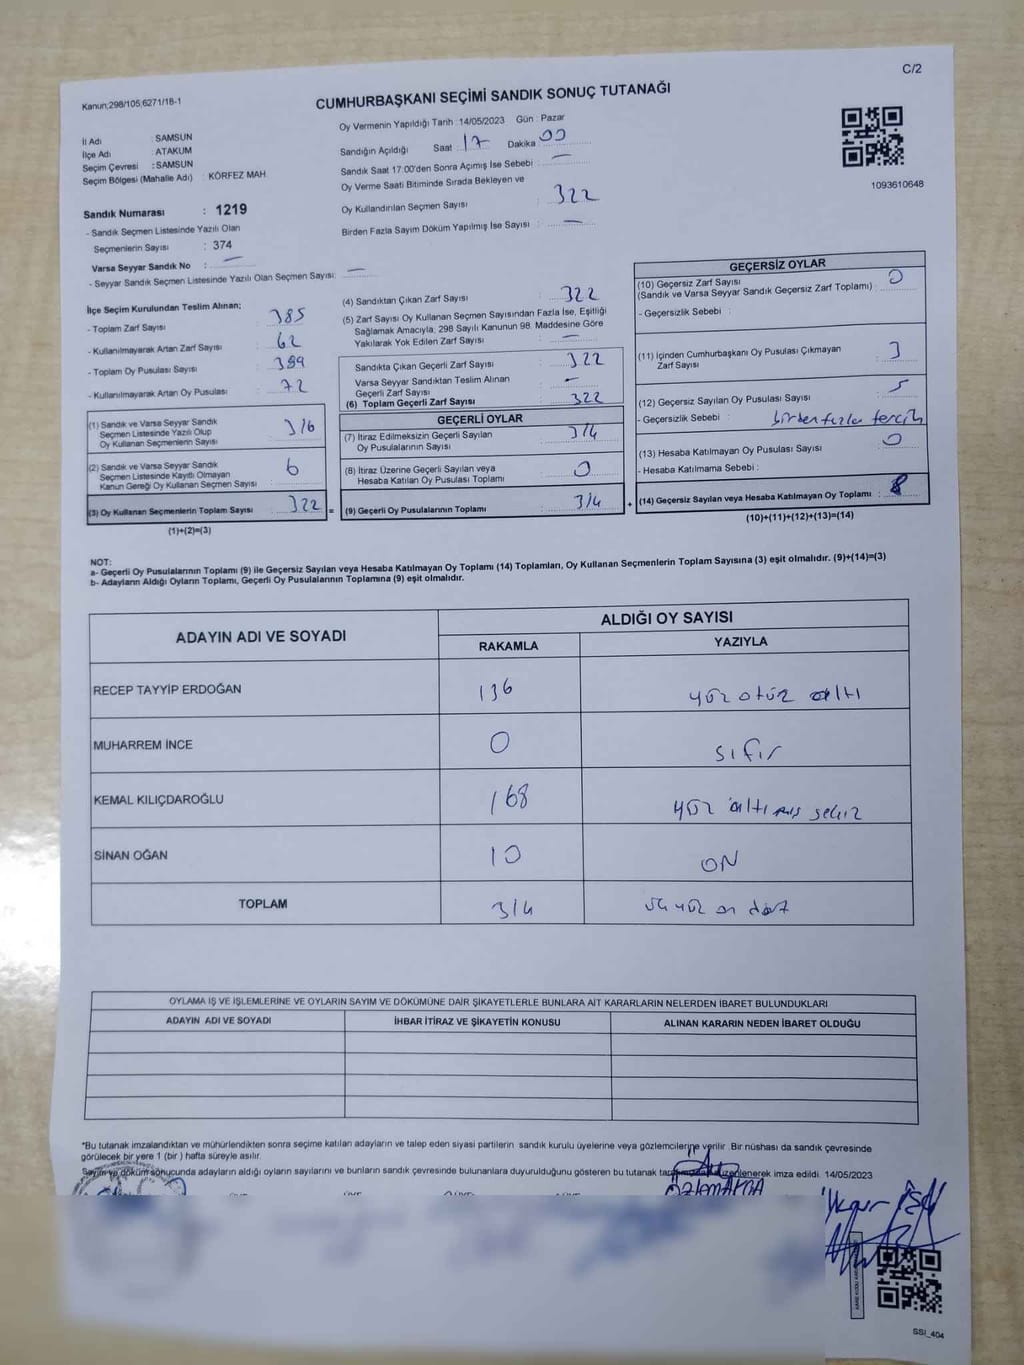 C/2
Kanun;298/105;6271/18-1
CUMHURBAŞKANI SEÇİMİ SANDIK SONUÇ TUTANAĞI
İl Adı : SAMSUN
İlçe Adı : ATAKUM
Seçim Çevresi : SAMSUN
Seçim Bölgesi (Mahalle Adı) : KÖRFEZ MAH.
Sandık Numarası : 1219
- Sandık Seçmen Listesinde Yazılı Olan
Seçmenlerin Sayısı : 374
Varsa Seyyar Sandık No : —
- Seyyar Sandık Seçmen Listesinde Yazılı Olan Seçmen Sayısı: —
Oy Vermenin Yapıldığı Tarih :14/05/2023 Gün : Pazar
Sandığın Açıldığı Saat : 17 Dakika : 00
Sandık Saat 17:00'den Sonra Açımış İse Sebebi : —
Oy Verme Saati Bitiminde Sırada Bekleyen ve
Oy Kullandırılan Seçmen Sayısı : 322
Birden Fazla Sayım Döküm Yapılmış İse Sayısı : —
1093610648
İlçe Seçim Kurulundan Teslim Alınan;
- Toplam Zarf Sayısı : 385
- Kullanılmayarak Artan Zarf Sayısı : 62
- Toplam Oy Pusulası Sayısı : 399
- Kullanılmayarak Artan Oy Pusulası : 72
(1) Sandık ve Varsa Seyyar Sandık
Seçmen Listesinde Yazılı Olup
Oy Kullanan Seçmenlerin Sayısı : 316
(2) Sandık ve Varsa Seyyar Sandık
Seçmen Listesinde Kayıtlı Olmayan
Kanun Gereği Oy Kullanan Seçmen Sayısı : 6
(3) Oy Kullanan Seçmenlerin Toplam Sayısı : 322
(1)+(2)=(3)
(4) Sandıktan Çıkan Zarf Sayısı : 322
(5) Zarf Sayısı Oy Kullanan Seçmen Sayısından Fazla İse, Eşitliği
Sağlamak Amacıyla, 298 Sayılı Kanunun 98. Maddesine Göre
Yakılarak Yok Edilen Zarf Sayısı : —
Sandıkta Çıkan Geçerli Zarf Sayısı : 322
Varsa Seyyar Sandıktan Teslim Alınan
Geçerli Zarf Sayısı : —
(6) Toplam Geçerli Zarf Sayısı : 322
GEÇERLİ OYLAR
(7) İtiraz Edilmeksizin Geçerli Sayılan
Oy Pusulalarının Sayısı : 314
(8) İtiraz Üzerine Geçerli Sayılan veya
Hesaba Katılan Oy Pusulası Toplamı : 0
= (9) Geçerli Oy Pusulalarının Toplamı : 314
GEÇERSİZ OYLAR
(10) Geçersiz Zarf Sayısı
(Sandık ve Varsa Seyyar Sandık Geçersiz Zarf Toplamı) : 0
- Geçersizlik Sebebi :
(11) İçinden Cumhurbaşkanı Oy Pusulası Çıkmayan
Zarf Sayısı : 3
(12) Geçersiz Sayılan Oy Pusulası Sayısı : 5
- Geçersizlik Sebebi : birden fazla tercih
(13) Hesaba Katılmayan Oy Pusulası Sayısı : 0
- Hesaba Katılmama Sebebi :
+ (14) Geçersiz Sayılan veya Hesaba Katılmayan Oy Toplamı : 8
(10)+(11)+(12)+(13)=(14)
NOT:
a- Geçerli Oy Pusulalarının Toplamı (9) ile Geçersiz Sayılan veya Hesaba Katılmayan Oy Toplamı (14) Toplamları, Oy Kullanan Seçmenlerin Toplam Sayısına (3) eşit olmalıdır. (9)+(14)=(3)
b- Adayların Aldığı Oyların Toplamı, Geçerli Oy Pusulalarının Toplamına (9) eşit olmalıdır.
ADAYIN ADI VE SOYADI ALDIĞI OY SAYISI
RAKAMLA YAZIYLA
RECEP TAYYİP ERDOĞAN 136 yüz otuz altı
MUHARREM İNCE 0 sıfır
KEMAL KILIÇDAROĞLU 168 yüz altmış sekiz
SİNAN OĞAN 10 ON
TOPLAM 314 üç yüz on dört
OYLAMA İŞ VE İŞLEMLERİNE VE OYLARIN SAYIM VE DÖKÜMÜNE DAİR ŞİKAYETLERLE BUNLARA AİT KARARLARIN NELERDEN İBARET BULUNDUKLARI
ADAYIN ADI VE SOYADI İHBAR İTİRAZ VE ŞİKAYETİN KONUSU ALINAN KARARIN NEDEN İBARET OLDUĞU
*Bu tutanak imzalandıktan ve mühürlendikten sonra seçime katılan adayların ve talep eden siyasi partilerin sandık kurulu üyelerine veya gözlemcilerine verilir. Bir nüshası da sandık çevresinde
görülecek bir yere 1 (bir ) hafta süreyle asılır.
Sayım ve döküm sonucunda adayların aldığı oyların sayılarını ve bunların sandık çevresinde bulunanlara duyurulduğunu gösteren bu tutanak düzenlenerek imza edildi. 14/05/2023
SSI_404